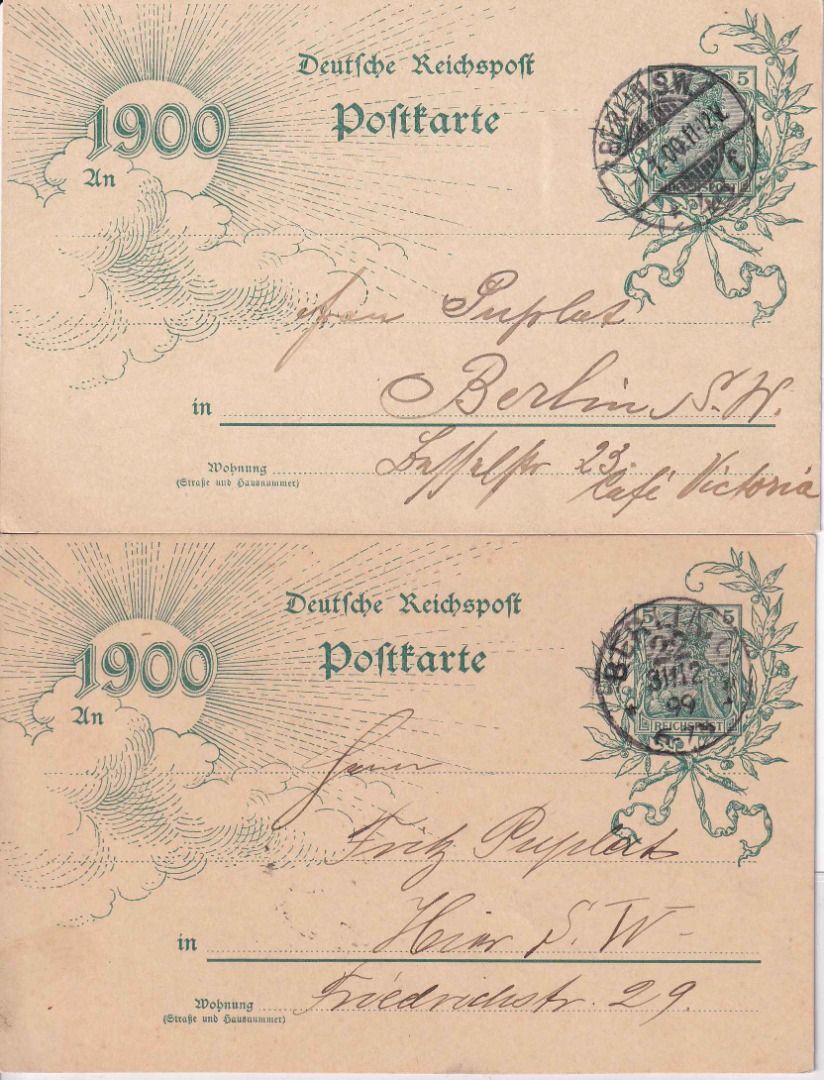 Deutsche Reichspost
Postkarte
1900
An
5
BERLIN S.W.
1.1.00.11-12V.
Puplat
in Berlin S.W.
Wohnung 23.
(Straße und Hausnummer)
Café Victoria
Deutsche Reichspost
Postkarte
1900
An
5 5
BERLIN
31 12
99
REICHSPOST
Herrn
Fritz Puplat
in Hier S.W-
Wohnung Friedrichstr. 29.
(Straße und Hausnummer)